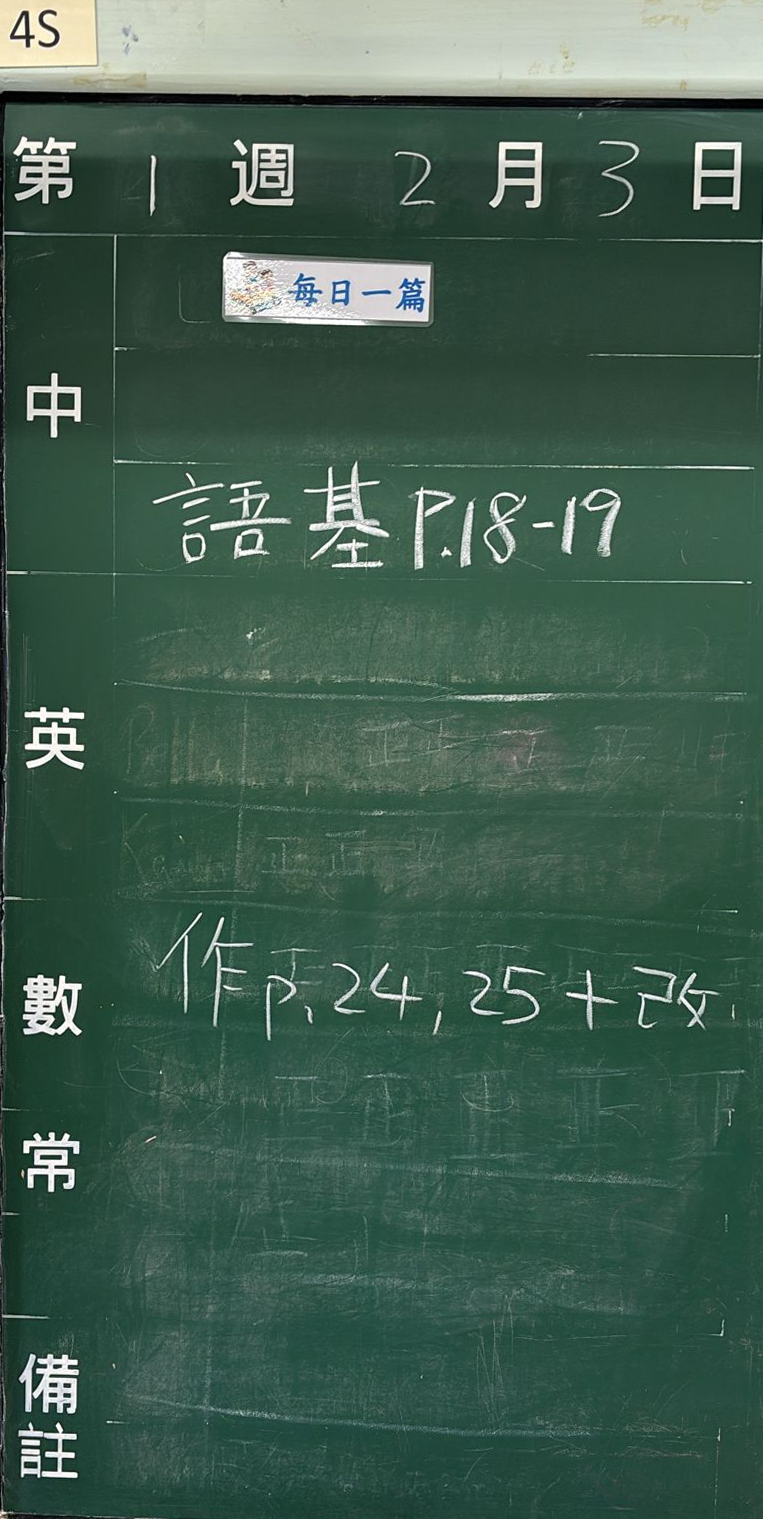 4S
第 1 週 2 月 3 日
每日一篇
中
語基 P.18-19
英
數
作 p.24, 25 + 改
常
備註